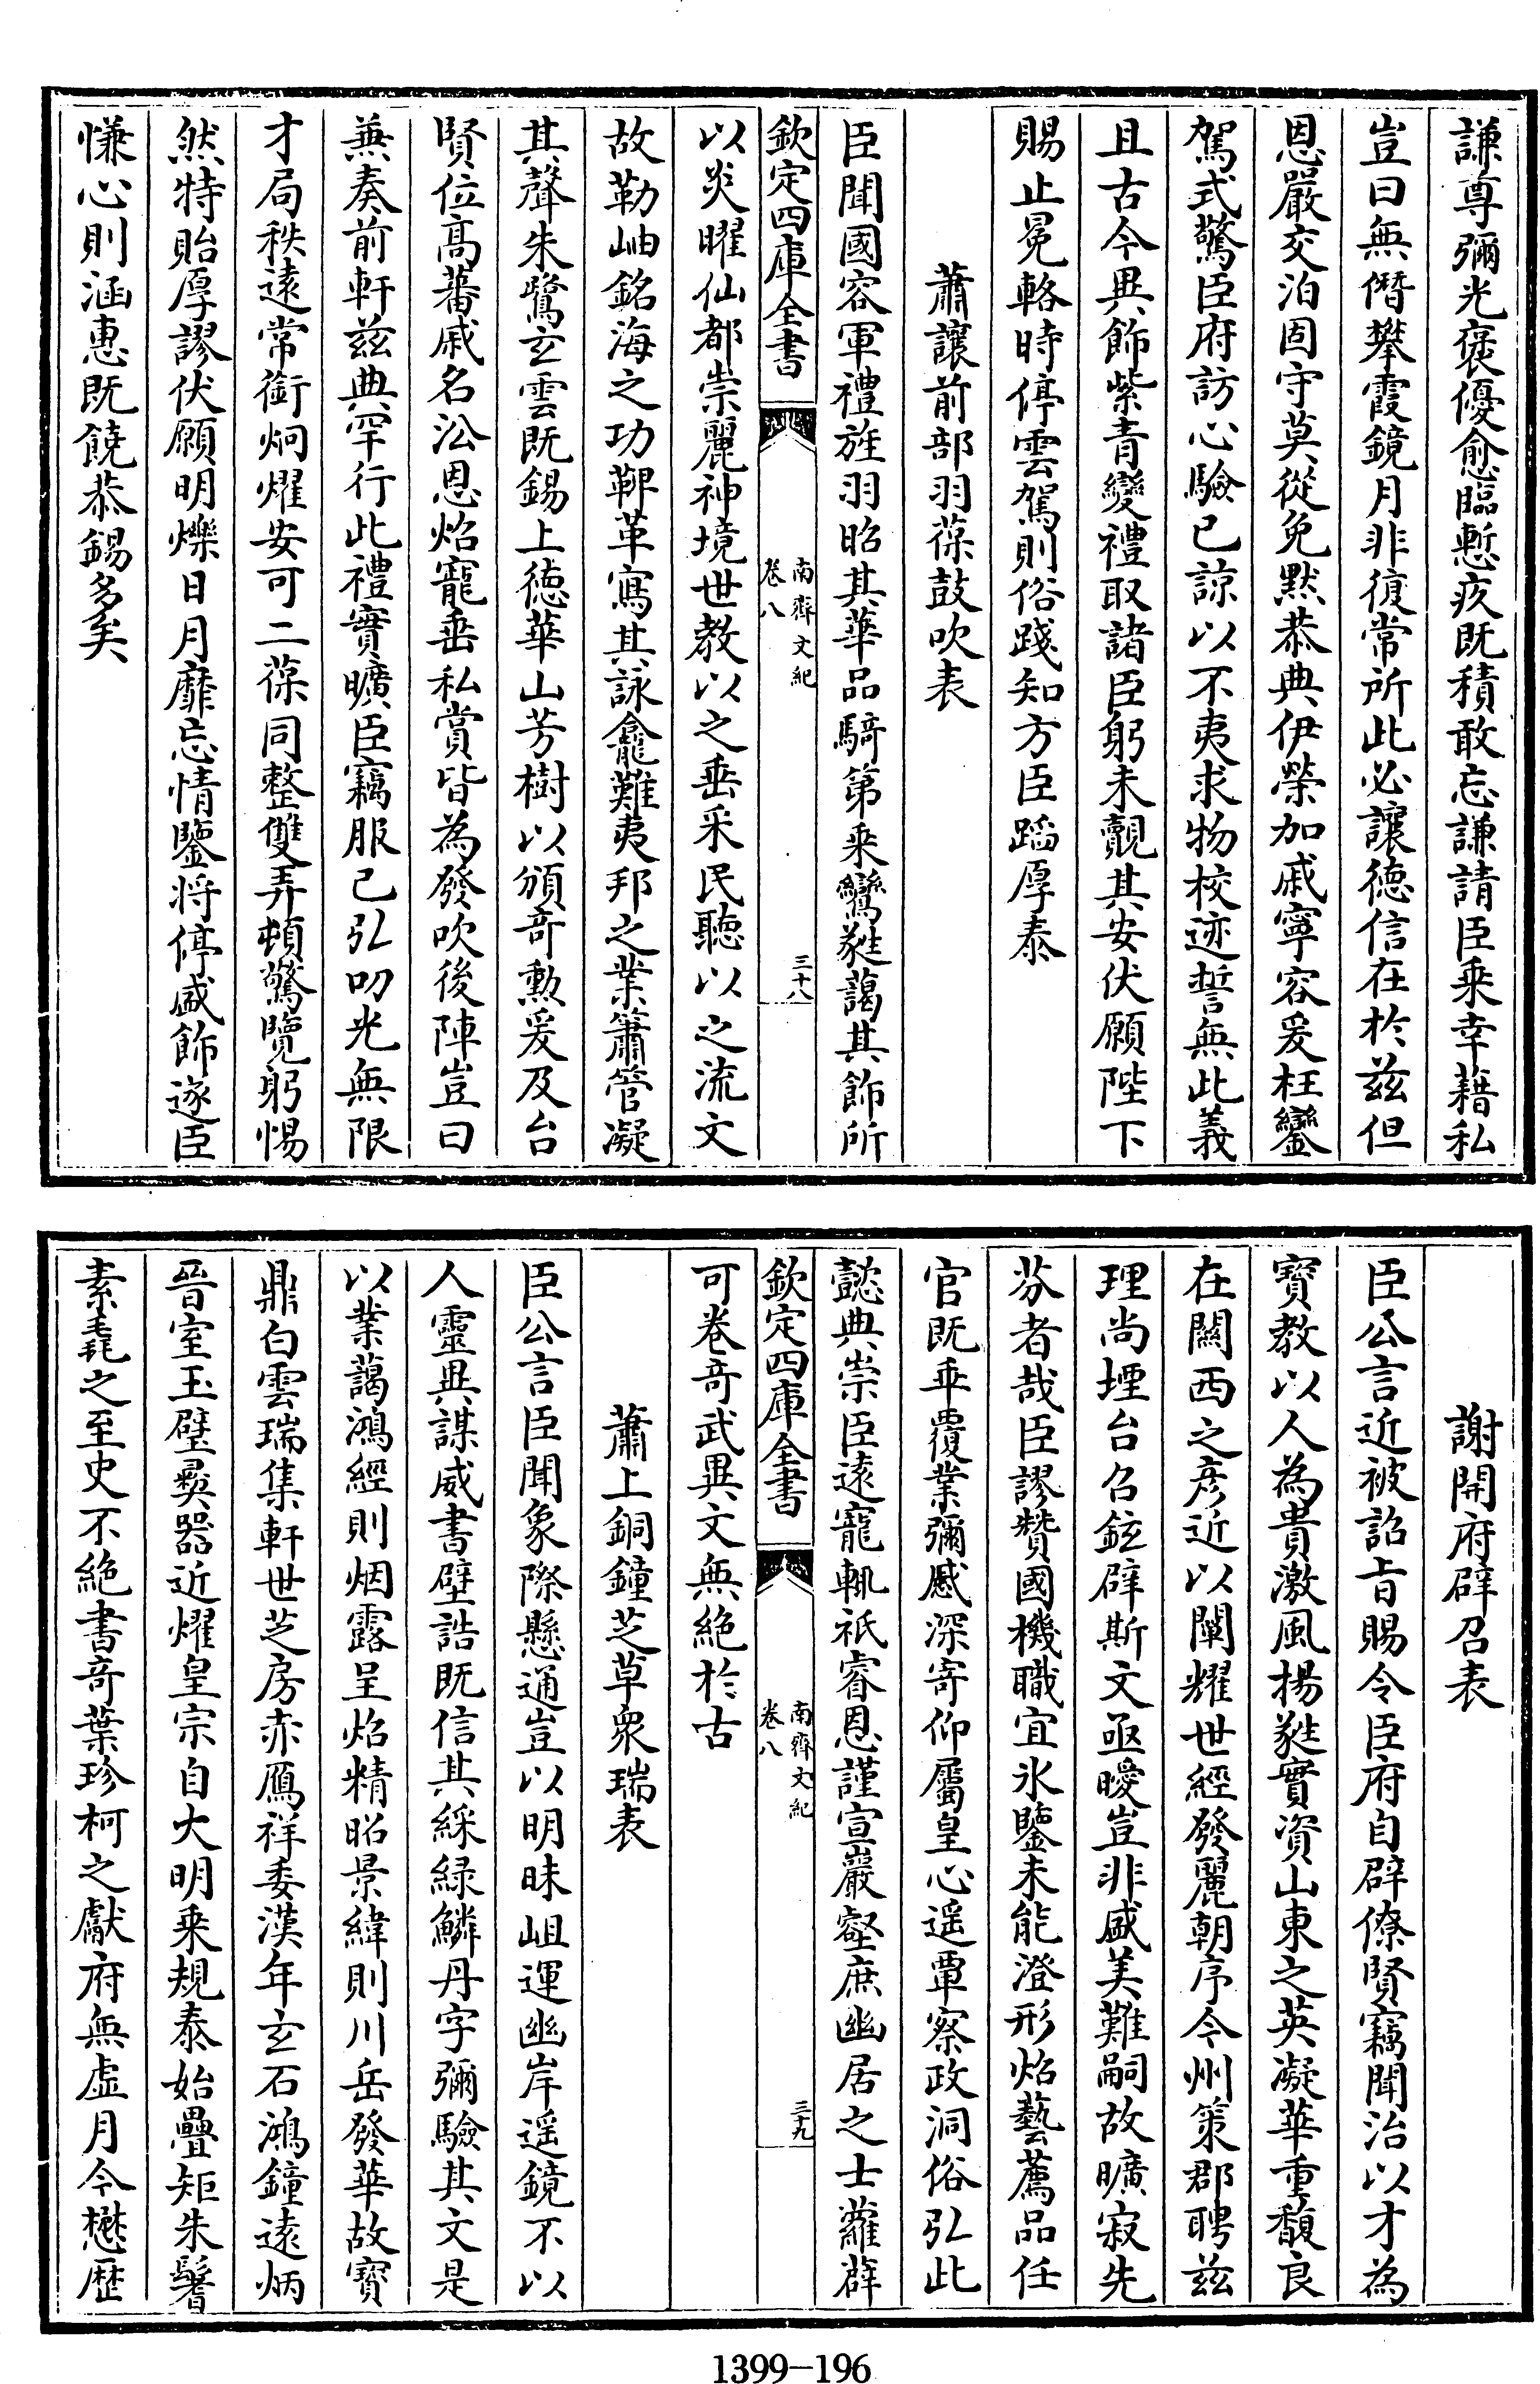 謙尊彌光褒優愈臨慙疚既積敢忘謙請臣乗幸藉私
豈曰無僭攀霞鏡月非復常所此必讓徳信在於兹但
恩嚴交洎固守莫從免黙恭典伊榮加戚寧容爰枉鑾
駕式驚臣府訪心驗已諒以不夷求物校迹誓無此義
且古今異飾紫青變禮取諸臣躬未覿其安伏願陛下
賜止冕輅時停雲駕則俗踐知方臣蹈厚泰
蕭讓前部羽葆鼓吹表
臣聞國容軍禮旌羽昭其華品騎第乗鸞蕤藹其飾所
欽定四庫全書
南齊文紀
卷八
三十八
以炎曜仙都崇麗神境世教以之垂采民聽以之流文
故勒岫銘海之功鞞革寫其詠龕難夷邦之業簫管凝
其聲朱鷺玄雲既錫上徳華山芳樹以頒竒勲爰及台
賢位髙蕃戚名沿恩炤寵垂私賞皆為發吹後陣豈曰
兼奏前軒兹典罕行此禮實曠臣竊服已弘叨光無限
才局秩逺常銜炯燿安可二葆同整雙弄頓驚覽躬惕
然特貽厚謬伏願明爍日月靡忘情鑒将停盛飾遂臣
慊心則涵惠既饒恭錫多矣
謝開府辟召表
臣公言近被詔㫖賜令臣府自辟僚賢竊聞治以才為
寳教以人為貴激風揚蕤實資山東之英凝華重馥良
在關西之彦近以闡耀世經發麗朝序今州策郡聘兹
理尚堙台召鉉辟斯文亟曖豈非盛美難嗣故曠寂先
芬者哉臣謬賛國機職宜氷鑒未能澄形炤藝薦品任
官既乖覆業彌慼深寄仰屬皇心遥覃察政洞俗弘此
懿典崇臣逺寵輒祇睿恩謹宣巖壑庶幽居之士蘿薜
欽定四庫全書
南齊文紀
卷八
三十九
可卷竒武異文無絶於古
蕭上銅鐘芝草衆瑞表
臣公言臣聞象際懸通豈以明昧岨運幽岸遥鏡不以
人靈異謀威書壁誥既信其綵緑鱗丹字彌驗其文是
以業藹鴻經則烟露呈炤精昭景緯則川岳發華故寳
鼎白雲瑞集軒世芝房赤鴈祥委漢年玄石鴻鐘逺炳
晉室玉璧彛器近燿皇宗自大明乗規泰始疊矩朱鬐
素毳之至史不絶書竒葉珍柯之獻府無虚月今懋歴
1399-196